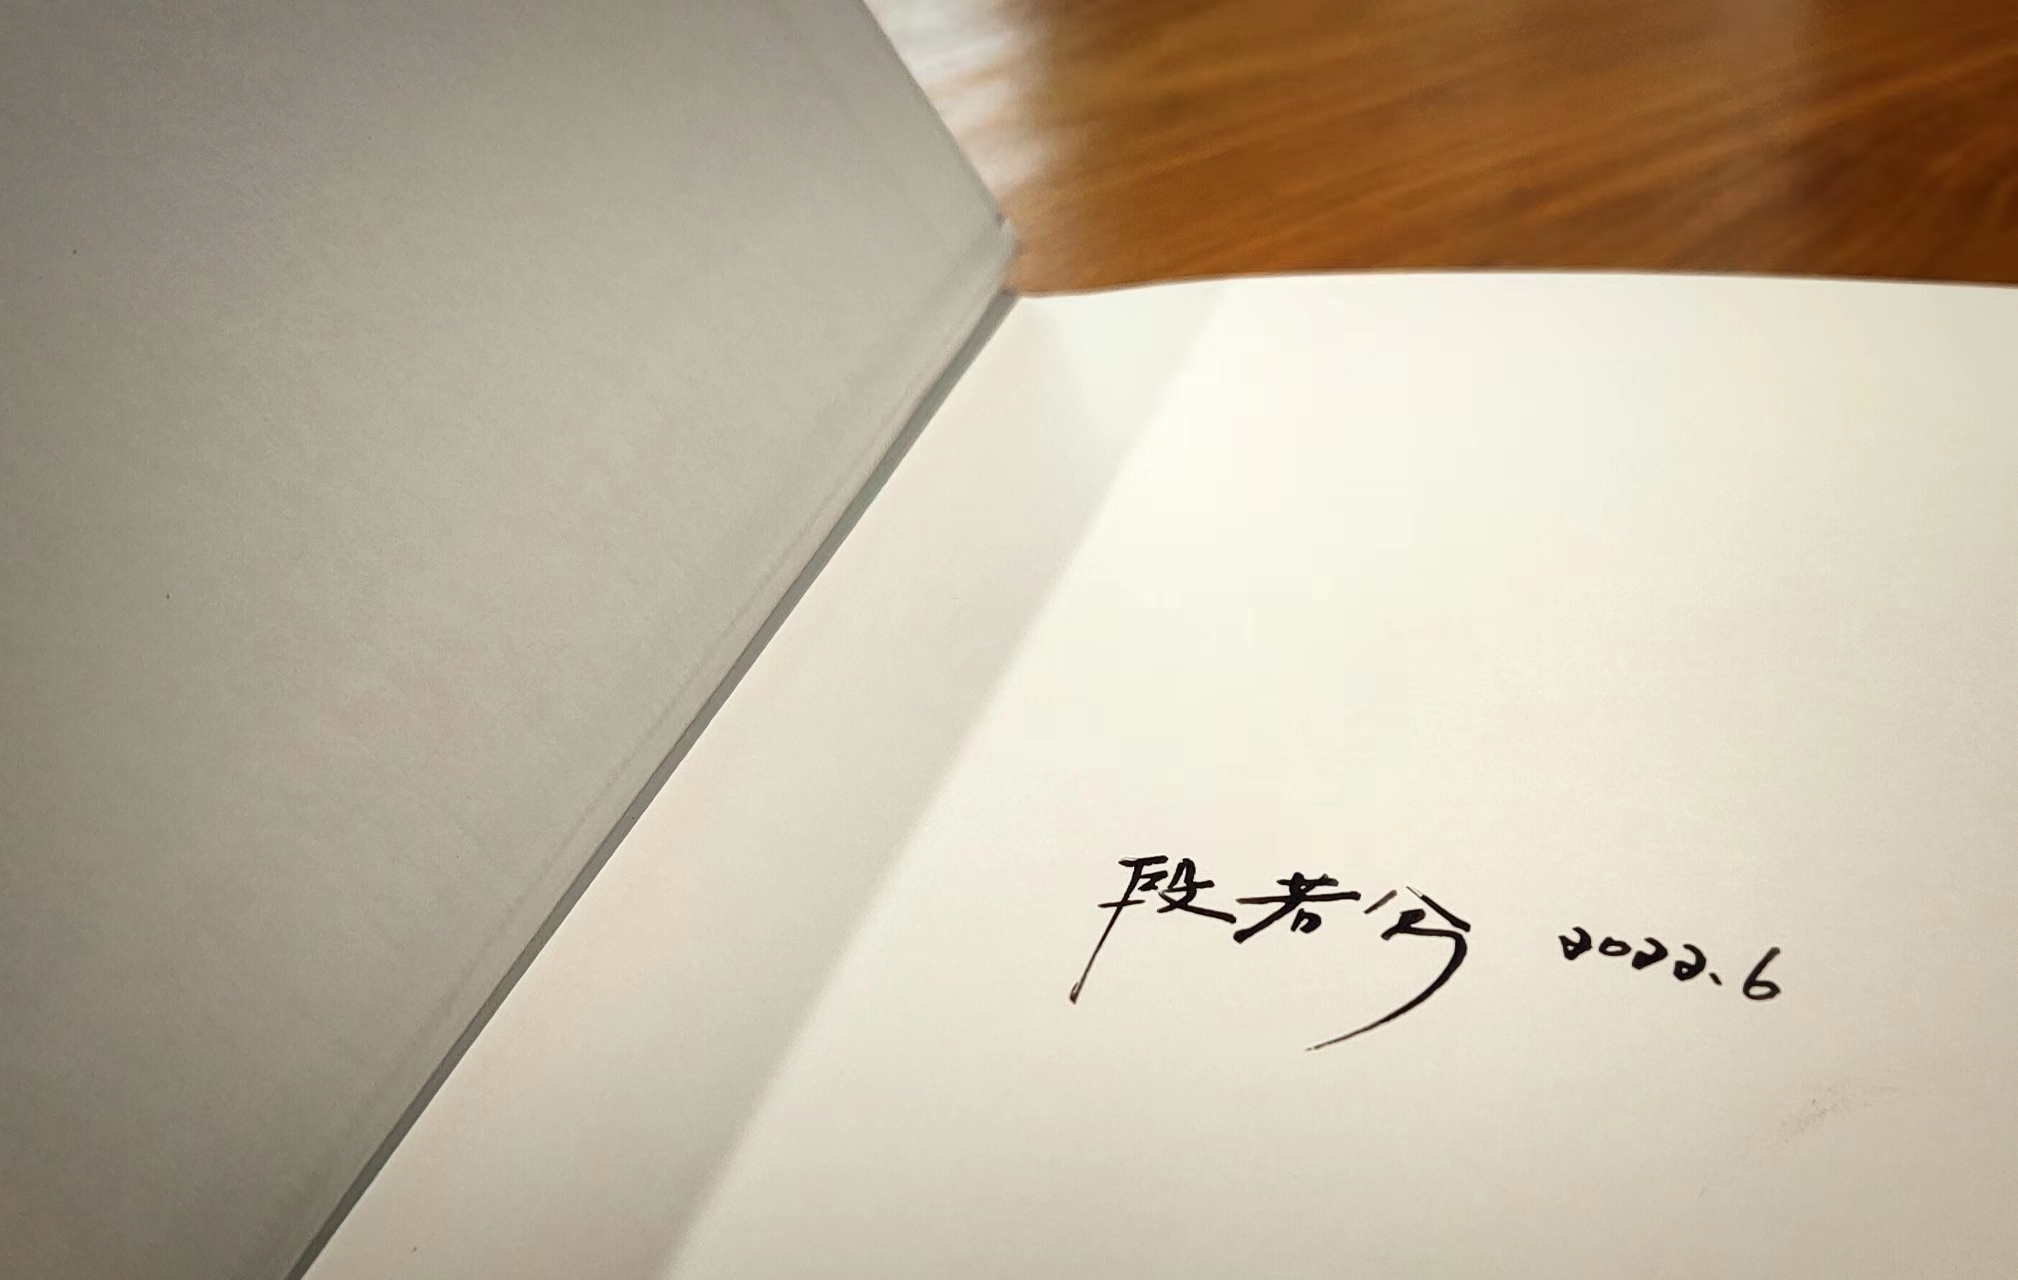 段若兮 2022.6